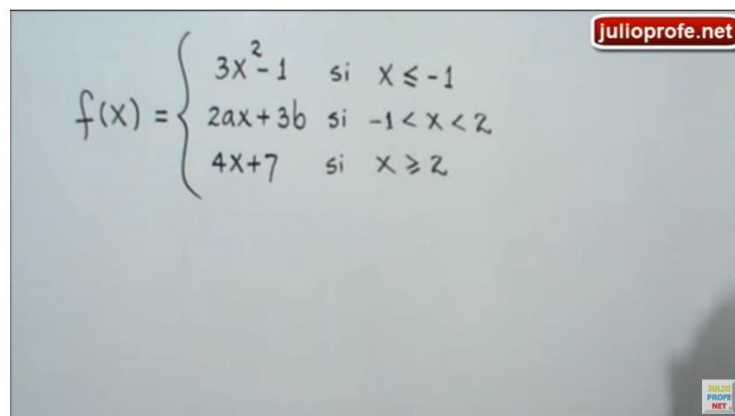 julioprofe.net
f(x) = { 3x²-1 si x ≤ -1
2ax+3b si -1 < x < 2
4x+7 si x ≥ 2
JULIO
PROFE
NET